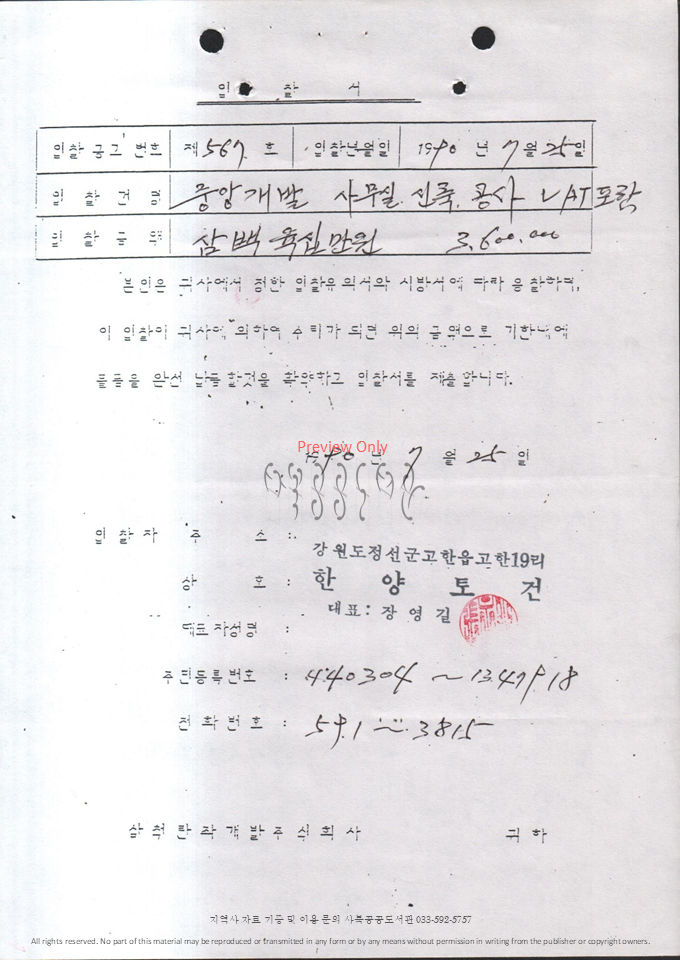 입 찰 서
입찰공고번호 제 567 호 입찰년월일 1990 년 7 월 25 일
입 찰 건 명 중앙개발 사무실 신축 공사 VAT포함
입 찰 금 액 삼백육십만원 3,600,000
본인은 귀사에서 정한 입찰유의서와 시방서에 따라 응찰하며,
이 입찰이 귀사에 의하여 수락가 되면 위의 금액으로 기한내에
물품을 완선 납품할것을 확약하고 입찰서를 제출합니다.
Preview Only
1990 년 7 월 25 일
입 찰 자 주 소 :
강원도정선군고한읍고한19리
상 호 : 한 양 토 건
대표 : 장 영 길
대표자성명 :
주민등록번호 : 440304 ~ 1347918
전 화 번 호 : 591 ~ 3815
삼척탄좌개발주식회사 귀하
지역사 자료 기증 및 이용 문의 사북공공도서관 033-592-5757
All rights reserved. No part of this material may be reproduced or transmitted in any form or by any means without permission in writing from the publisher or copyright owners.